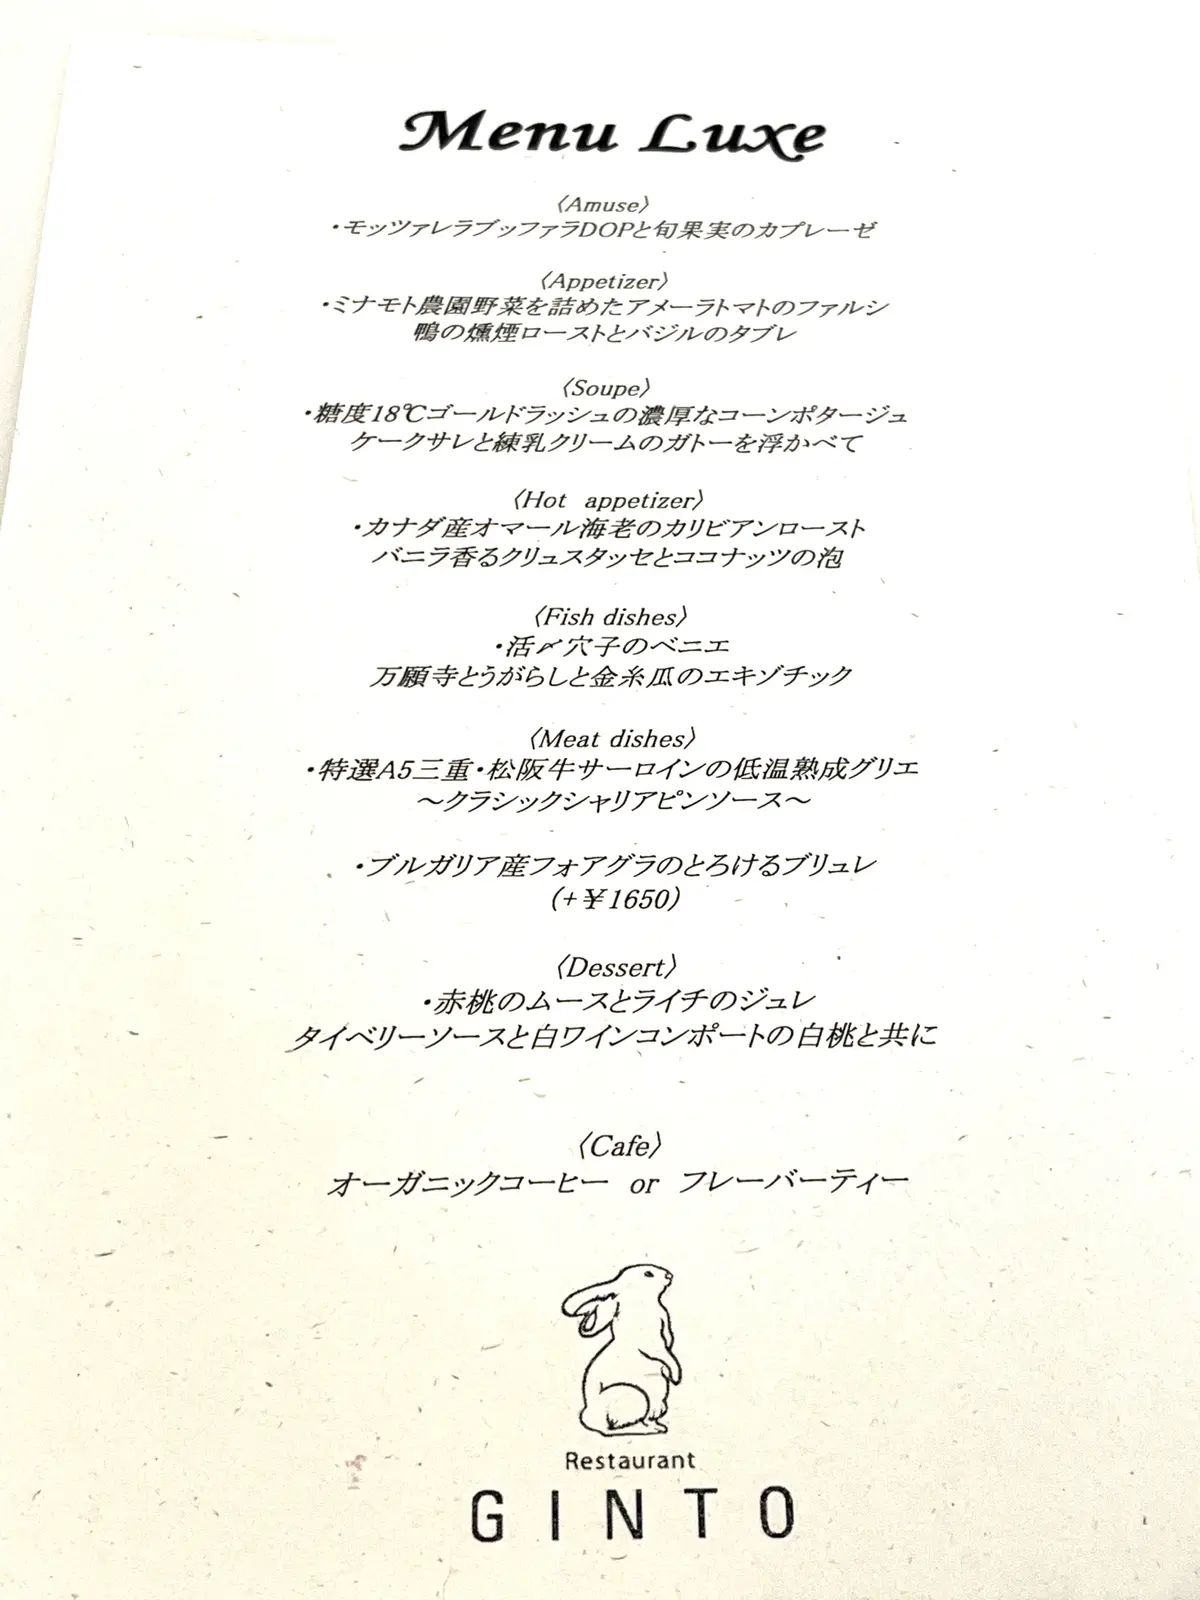 Menu Luxe
〈Amuse〉
・モッツァレラブッファラDOPと旬果実のカプレーゼ
〈Appetizer〉
・ミナモト農園野菜を詰めたアメーラトマトのファルシ
鴨の燻煙ローストとバジルのタブレ
〈Soupe〉
・糖度18℃ゴールドラッシュの濃厚なコーンポタージュ
ケークサレと練乳クリームのガトーを浮かべて
〈Hot appetizer〉
・カナダ産オマール海老のカリビアンロースト
バニラ香るクリュスタッセとココナッツの泡
〈Fish dishes〉
・活〆穴子のベニエ
万願寺とうがらしと金糸瓜のエキゾチック
〈Meat dishes〉
・特選A5三重・松阪牛サーロインの低温熟成グリエ
～クラシックシャリアピンソース～
・ブルガリア産フォアグラのとろけるブリュレ
(+￥1650)
〈Dessert〉
・赤桃のムースとライチのジュレ
タイベリーソースと白ワインコンポートの白桃と共に
〈Cafe〉
オーガニックコーヒー or フレーバーティー
Restaurant
GINTO